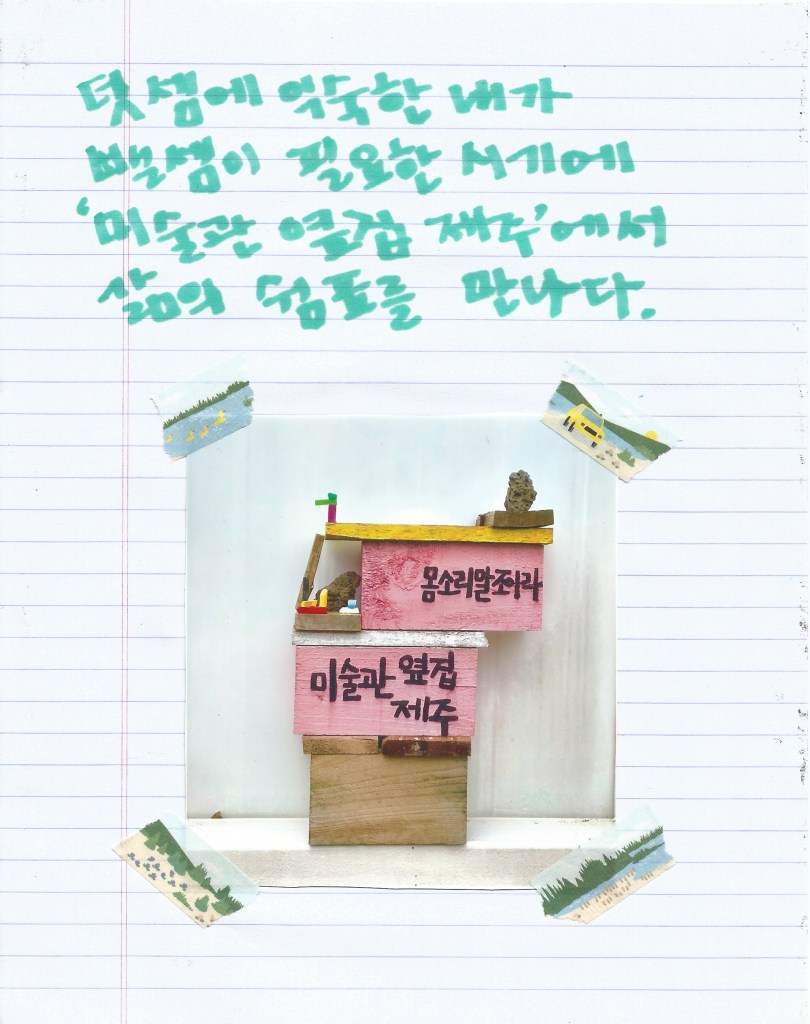 덧셈에 익숙한 내가
뺄셈이 필요한 시기에
'미술관 옆집 제주'에서
삶의 쉼표를 만나다.
몸소리말조아라
미술관 옆집
제주